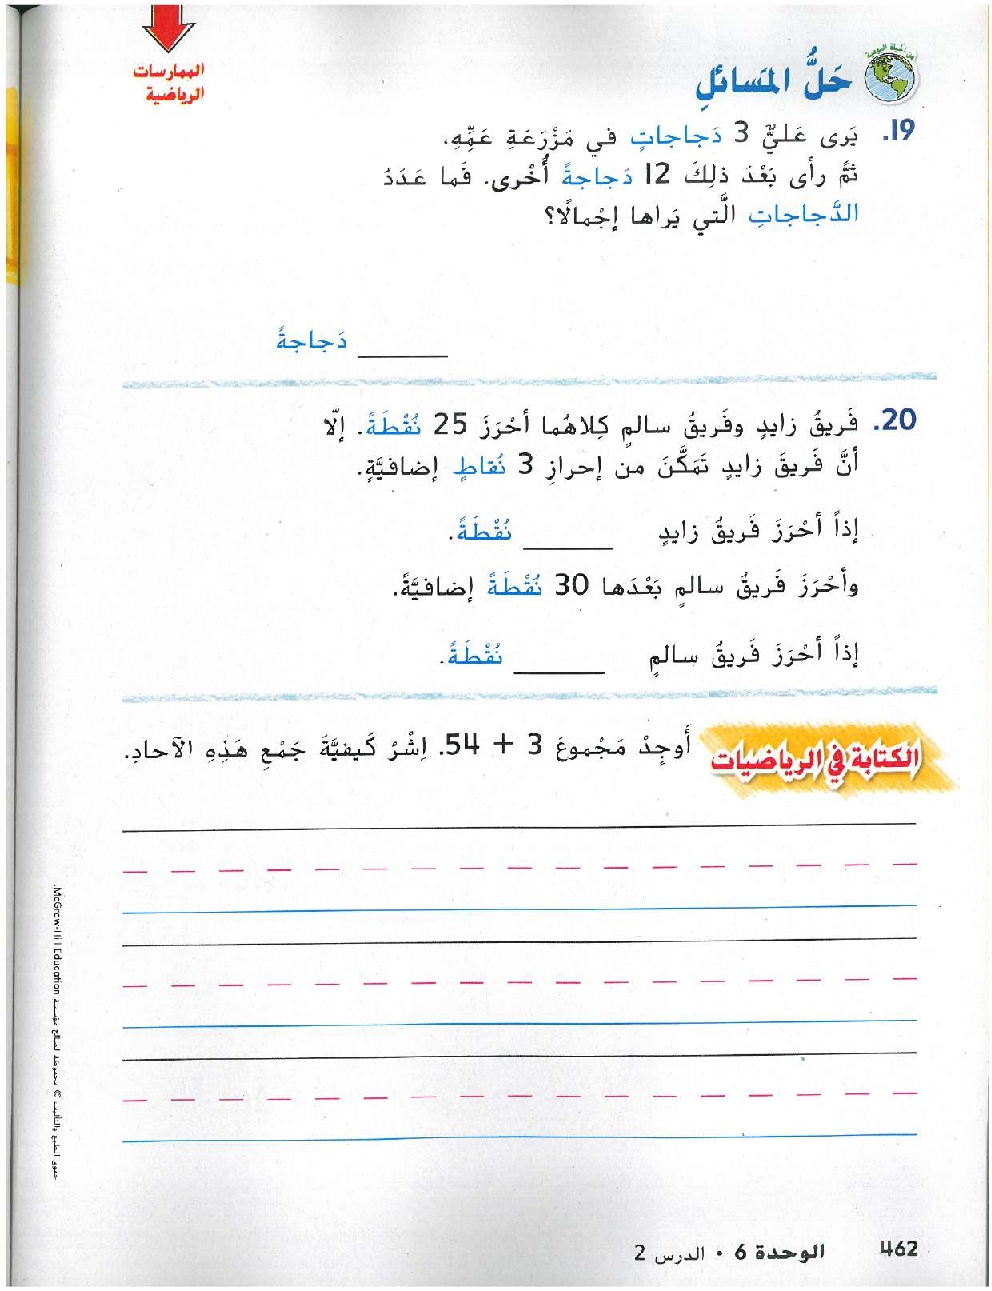 الممارسات
الرياضية
حَلُّ المَسائلِ
19. يَرى عَليٌّ 3 دَجاجاتٍ في مَزْرَعَةِ عَمِّهِ.
ثمَّ رأى بَعْدَ ذلِكَ 12 دَجاجةً أُخْرى. فَما عَدَدُ
الدَّجاجاتِ الَّتي يَراها إجْمالًا؟
_____ دَجاجةً
20. فَريقُ زايدٍ وفَريقُ سالمٍ كِلاهُما أحْرَزَ 25 نُقْطَةً. إلّا
أنَّ فَريقَ زايدٍ تَمَكَّنَ من إحرازِ 3 نُقاطٍ إضافيَّةٍ.
إذاً أحْرَزَ فَريقُ زايدٍ _____ نُقْطَةً.
وأحْرَزَ فَريقُ سالمٍ بَعْدَها 30 نُقْطَةً إضافيَّةً.
إذاً أحْرَزَ فَريقُ سالمٍ _____ نُقْطَةً.
الكتابة في الرياضيات أوجِدْ مَجْموعَ 3 + 54. اِشْرُ كَيفيَّةَ جَمْعِ هَذِهِ الآحادِ.
حقوق الطبع والتأليف © محفوظة لصالح مؤسسة McGraw-Hill Education.
462 الوحدة 6 • الدرس 2